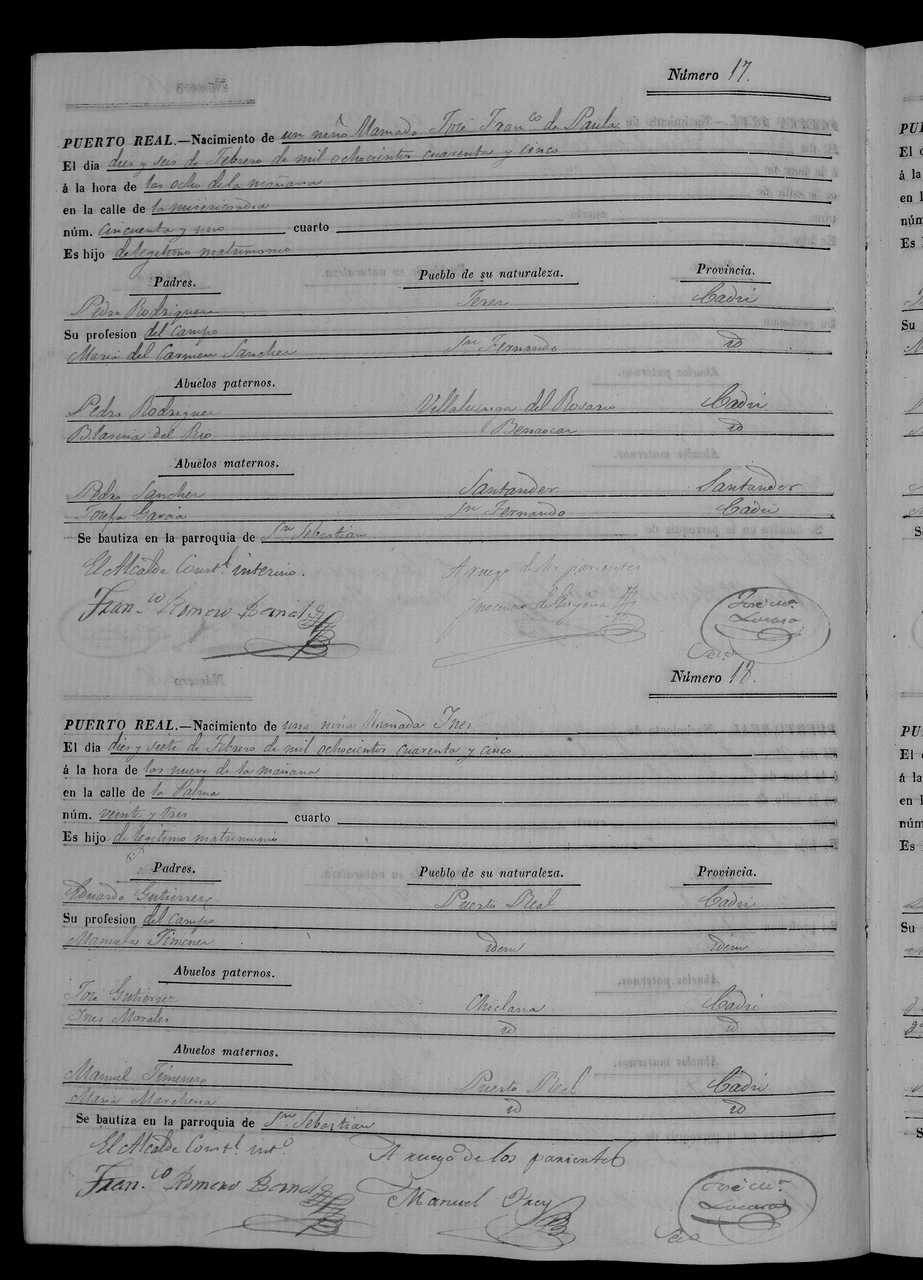 Número 17.
PUERTO REAL.—Nacimiento de un niño llamado José Fran.co de Paula
El dia diez y seis de Febrero de mil ochocientos cuarenta y cinco
á la hora de las ocho de la mañana
en la calle de la misericordia
núm. cincuenta y uno cuarto
Es hijo de legitimo matrimonio
Padres. Pueblo de su naturaleza. Provincia.
Pedro Rodriguez Jerez Cadiz
Su profesion del campo
Maria del Carmen Sanchez Sn Fernando id
Abuelos paternos.
Pedro Rodriguez Villaluenga del Rosario Cadiz
del Rio Benaocaz id
Abuelos maternos.
Pedro Sanchez Santander Santander
Josefa Garcia Sn Fernando Cadiz
Se bautiza en la parroquia de Sn Sebastian
El Alcalde Const.l interino. A ruego de los parientes
Fran.co Romero José M.a
Lozano
Sec.o
Número 18.
PUERTO REAL.—Nacimiento de una niña llamada Ines
El dia diez y siete de Febrero de mil ochocientos cuarenta y cinco
á la hora de las nueve de la mañana
en la calle de la Palma
núm. veinte y tres cuarto
Es hijo de legitimo matrimonio
Padres. Pueblo de su naturaleza. Provincia.
Eduardo Gutierrez Puerto Real Cadiz
Su profesion del campo
Manuela Jimenez idem idem
Abuelos paternos.
José Gutierrez Chiclana Cadiz
Ines Morales id id
Abuelos maternos.
Manuel Jimenez Puerto Real Cadiz
Maria Marchena id id
Se bautiza en la parroquia de Sn Sebastian
El Alcalde Const.l int.o A ruego de los parientes
Fran.co Romero Manuel José M.a
Lozano
Sec